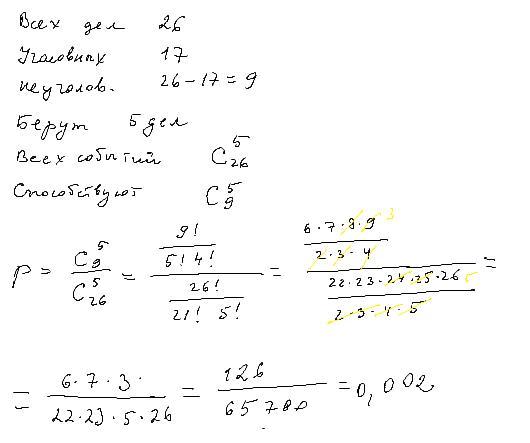 Всех дел 26
Уголовных 17
Неуголов. 26-17=9
Берут 5 дел
Всех событий C₂₆⁵
Способствуют C₉⁵
P = C₉⁵ / C₂₆⁵ = (9! / (5! 4!)) / (26! / (21! 5!)) = ((6·7·8·9 3) / (2·3·4)) / ((22·23·24·25·26 5) / (2·3·4·5)) =
= (6·7·3·) / (22·23·5·26) = 126 / 65780 = 0,002